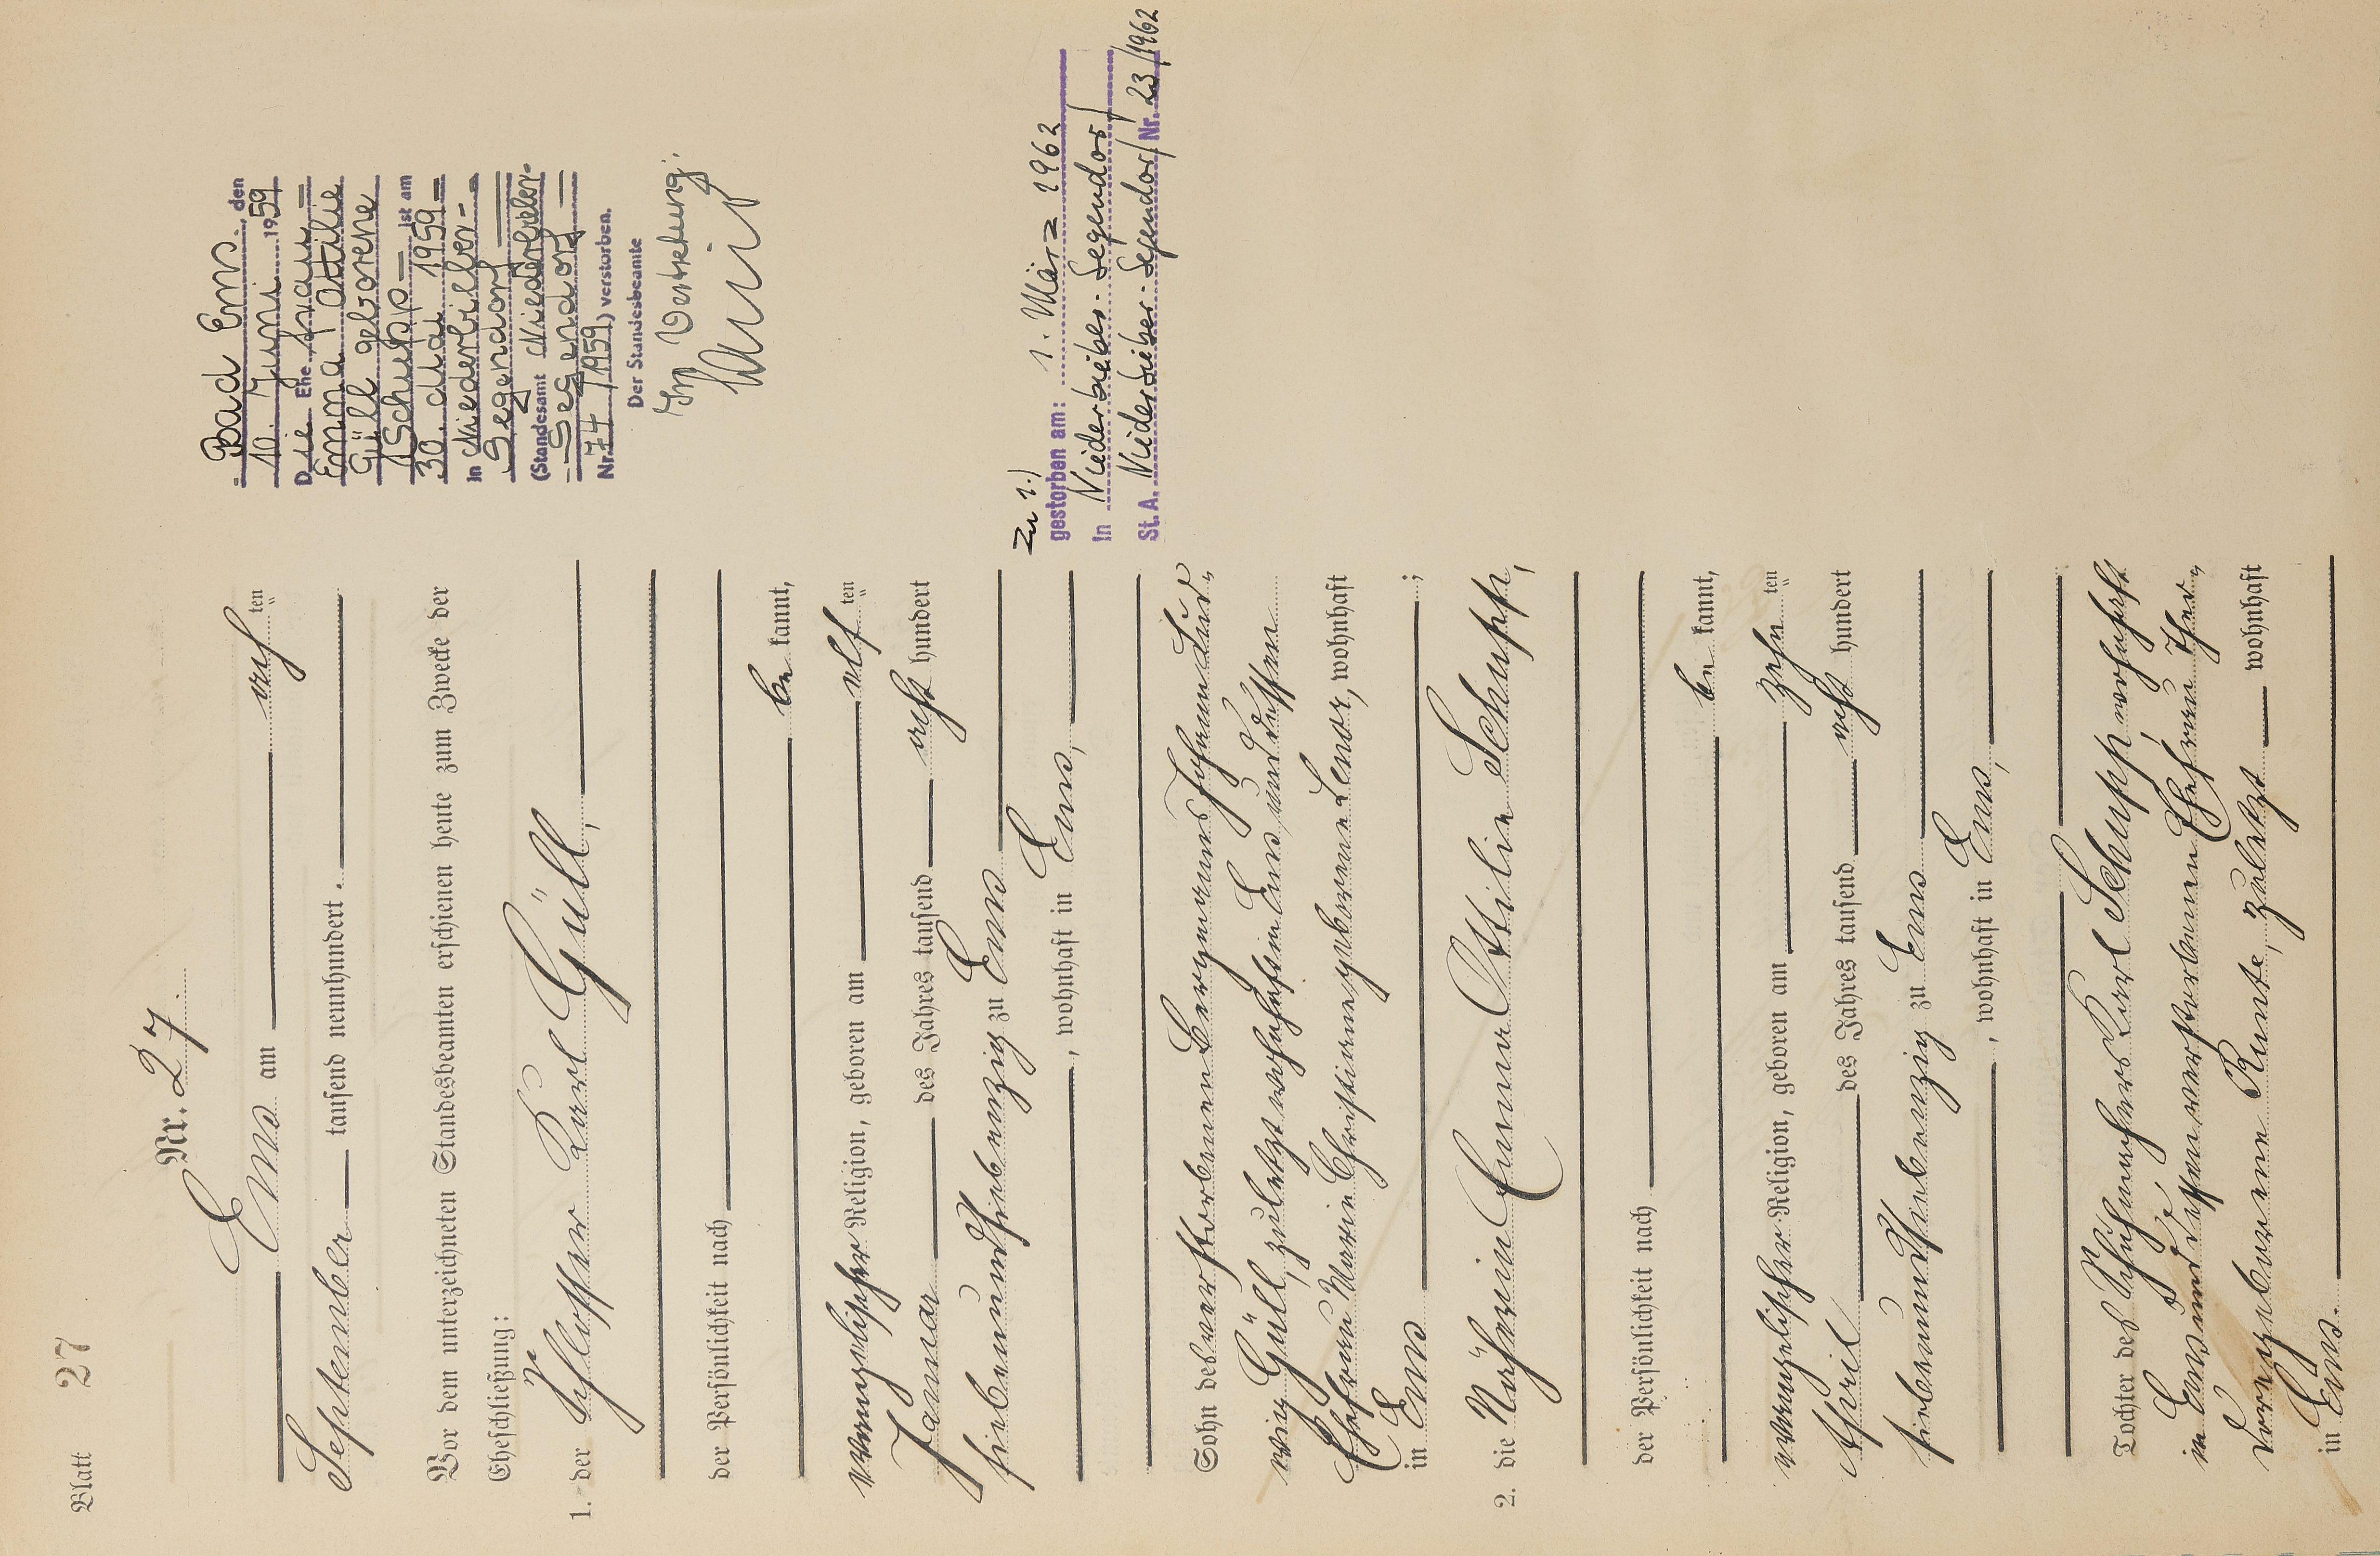 Blatt 27
Nr. 27.
Ems am acht ten
September tausend neunhundert.
Vor dem unterzeichneten Standesbeamten erschienen heute zum Zwecke der
Eheschließung:
1. der Schlosser Karl Güll,
der Persönlichkeit nach
be kannt,
evangelischer Religion, geboren am elf ten
Januar des Jahres tausend acht hundert
siebenundsiebenzig zu Ems
, wohnhaft in Ems,
Sohn des verstorbenen Bergmanns Johann Lud-
wig Güll, zuletzt wohnhaft in Ems, und dessen
Ehefrau Marie Christiane geborene Lenor, wohnhaft
in Ems ;
2. die Näherin Emma Ottilie Schupp,
der Persönlichkeit nach
be kannt,
evangelischer Religion, geboren am zehn ten
April des Jahres tausend acht hundert
siebenundsiebenzig zu Ems
, wohnhaft in Ems,
Tochter des Schuhmachers Karl Schupp, wohnhaft
in Ems und dessen verstorbenen Ehefrau
geborene Kunte, zuletzt wohnhaft
in Ems.
Bad Ems, den
10. Juni 1959
Die Ehefrau
Emma Ottilie
Güll geborene
Schupp ist am
30. Mai 1959
in Niederbieber-
Segendorf
(Standesamt Niederbieber-
Segendorf
Nr. 74/1959) verstorben.
Der Standesbeamte
In Vertretung:
Zu 1.)
gestorben am: 1. März 1962
in Niederbieber-Segendorf
St. A. Niederbieber-Segendorf Nr. 23/1962